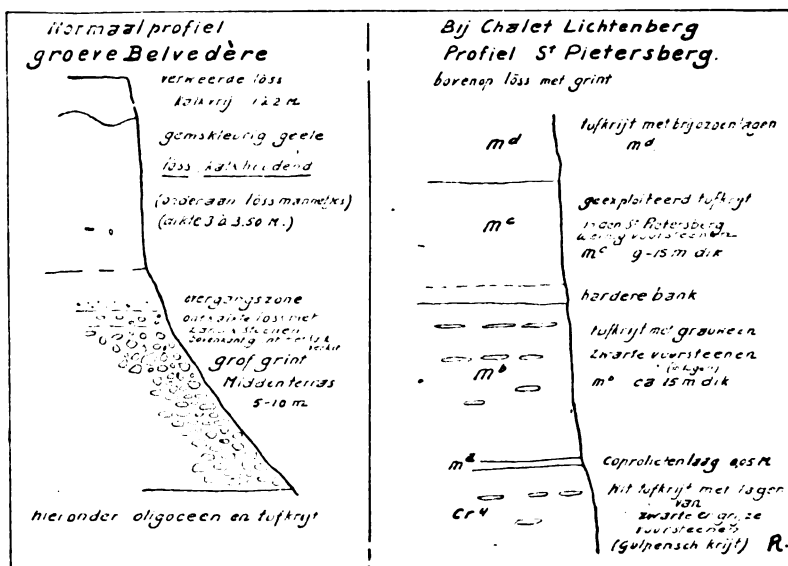 Normaal profiel
groeve Belvedère
verweerde löss
kalkvrij 1 à 2 M.
gemskleurig geele
löss, kalkhoudend
(onderaan lössmannetjes)
(dikte 3 à 3.50 M.)
overgangszone
ontkalkte löss met
zand & steenen
bovenkant
grof grint
Middenterras
5-10 m
hieronder oligoceen en tufkrijt
Bij Chalet Lichtenberg
Profiel St Pietersberg.
bovenop löss met grint
md
tufkrijt met brijozoenlagen
md
mc
geexploiteerd tufkrijt
in den St Pietersberg
weinig vuursteenen
mc 9-15 m dik
hardere bank
tufkrijt met grauwe en
zwarte vuursteenen
(in lagen)
mb
mb ca 15 m dik
ma
coprolietenlaag 0,05 M
Cr4
Wit tufkrijt met lagen
van
zwarte en grijze
vuursteenen
(Gulpensch krijt) R.